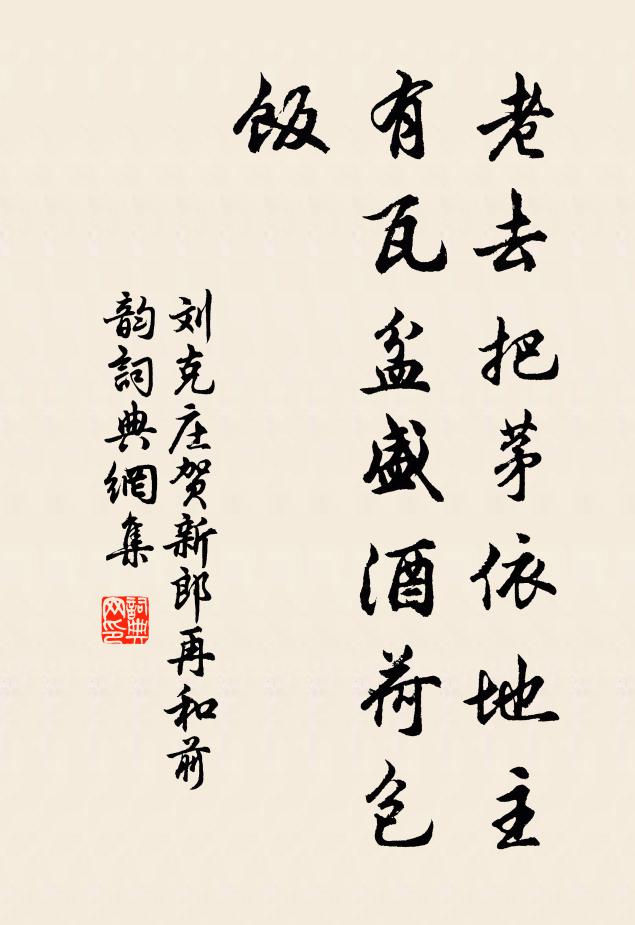 老去把茅依地主
有瓦盆盛酒荷包
飯
刘克庄贺新郎再和前
韵詞典網集
詞典
网印